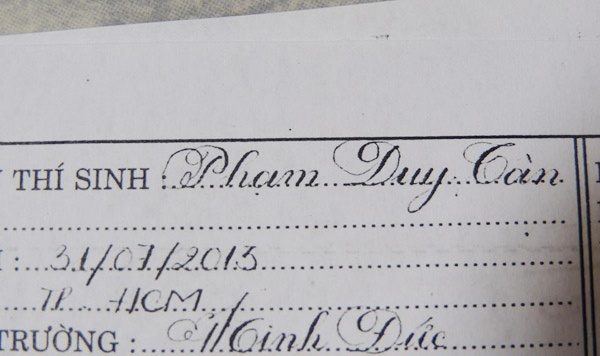 THÍ SINH : Phạm Duy Tân
: 31/07/2013
TP. HCM
TRƯỜNG : Minh Đức